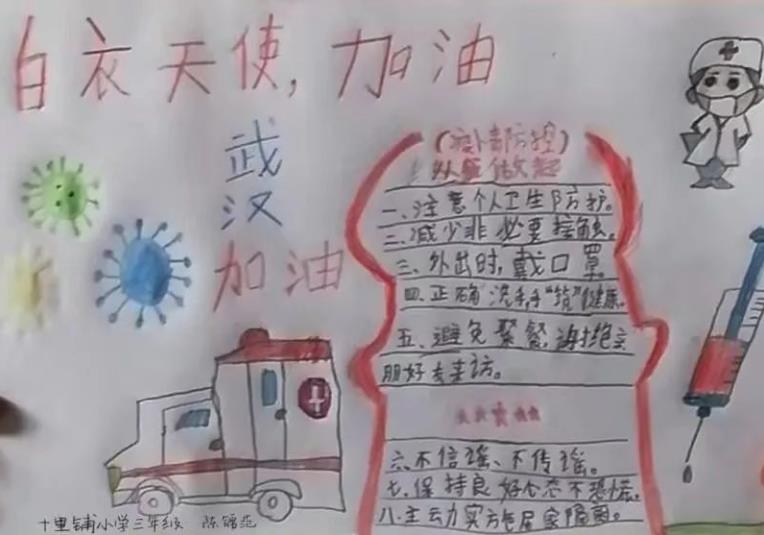 白衣天使,加油
武
汉
加油
(疫情防控)
从我做起
一、注意个人卫生防护。
二、减少非必要接触。
三、外出时,戴口罩。
四、正确洗手,手“筑”健康。
五、避免聚餐,谢绝亲
朋好友来访。
六、不信瑶、不传瑶。
七、保持良好心态不恐慌。
八、主动力实方色居家隔离。
十里铺小学三年级